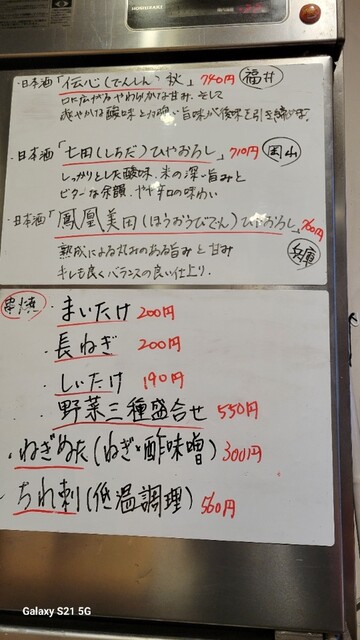 HOSHIZAKI
・日本酒「伝心(でんしん)秋」740円 福井
口に広がるやわらかな甘み、そして
爽やかな酸味と力強い旨味が後味を引き締め
・日本酒「七田(しちだ)ひやおろし」710円 岡山
しっかりとした酸味、米の深い旨みと
ビターな余韻、やや辛口の味わい
・日本酒「鳳凰美田(ほうおうびでん)ひやおろし」760円
熟成による丸みのある旨みと甘み 兵庫
キレも良くバランスの良い仕上り.
串焼 ・まいたけ 200円
・長ねぎ 200円
・しいたけ 190円
・野菜三種盛合せ 550円
・ねぎぬた(ねぎ・酢味噌) 300円
ちれ刺(低温調理) 560円
Galaxy S21 5G